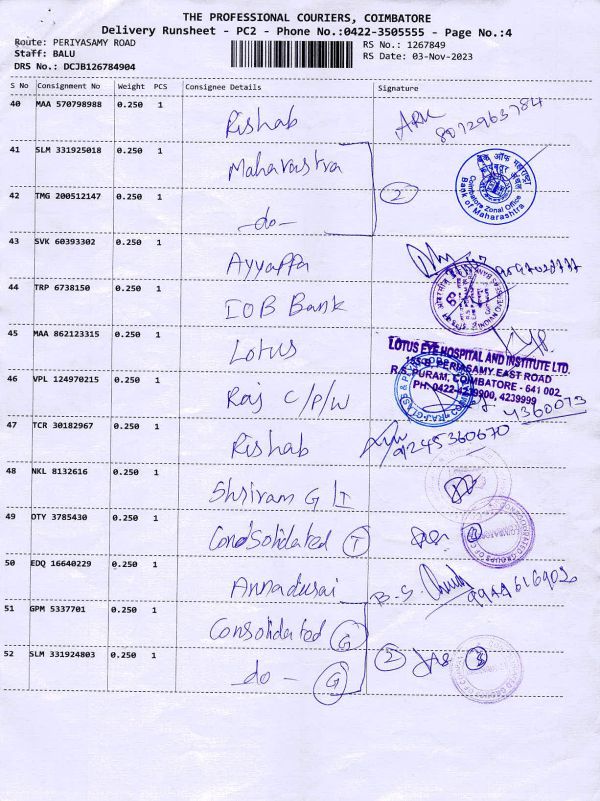 THE PROFESSIONAL COURIERS, COIMBATORE
Delivery Runsheet - PC2 - Phone No.:0422-3505555 - Page No.:4
Route: PERIYASAMY ROAD
RS No.: 1267849
Staff: BALU
RS Date: 03-Nov-2023
DRS No.: DCJB126784904
S No Consignment No Weight PCS Consignee Details Signature
40 MAA 570798988 0.250 1
Rishab
8072963784
41 SLM 331925018 0.250 1
Maharastra
बैंक ऑफ महाराष्ट्र
Coimbatore Zonal Office
Bank of Maharashtra
42 TMG 200512147 0.250 1
-do-
2
43 SVK 60393302 0.250 1
Ayyappa
44 TRP 6738150 0.250 1
IOB Bank
45 MAA 862123315 0.250 1
Lotus
LOTUS EYE HOSPITAL AND INSTITUTE LTD.
PERIYASAMY EAST ROAD
R.S. PURAM, COIMBATORE - 641 002
PH: 0422-4239900, 4239999
46 VPL 124970215 1
Raj C/P/W
4360073
47 TCR 30182967 0.250 1
Rishab
9245360670
48 NKL 8132616 0.250 1
Shriram G I
49 OTY 3785430 0.250 1
Consolidated T
50 EDQ 16640229 0.250 1
Annadurai
B.S.
9944616902
51 GPM 5337701 0.250 1
Consolidated G
52 SLM 331924803 0.250 1
-do- G
2